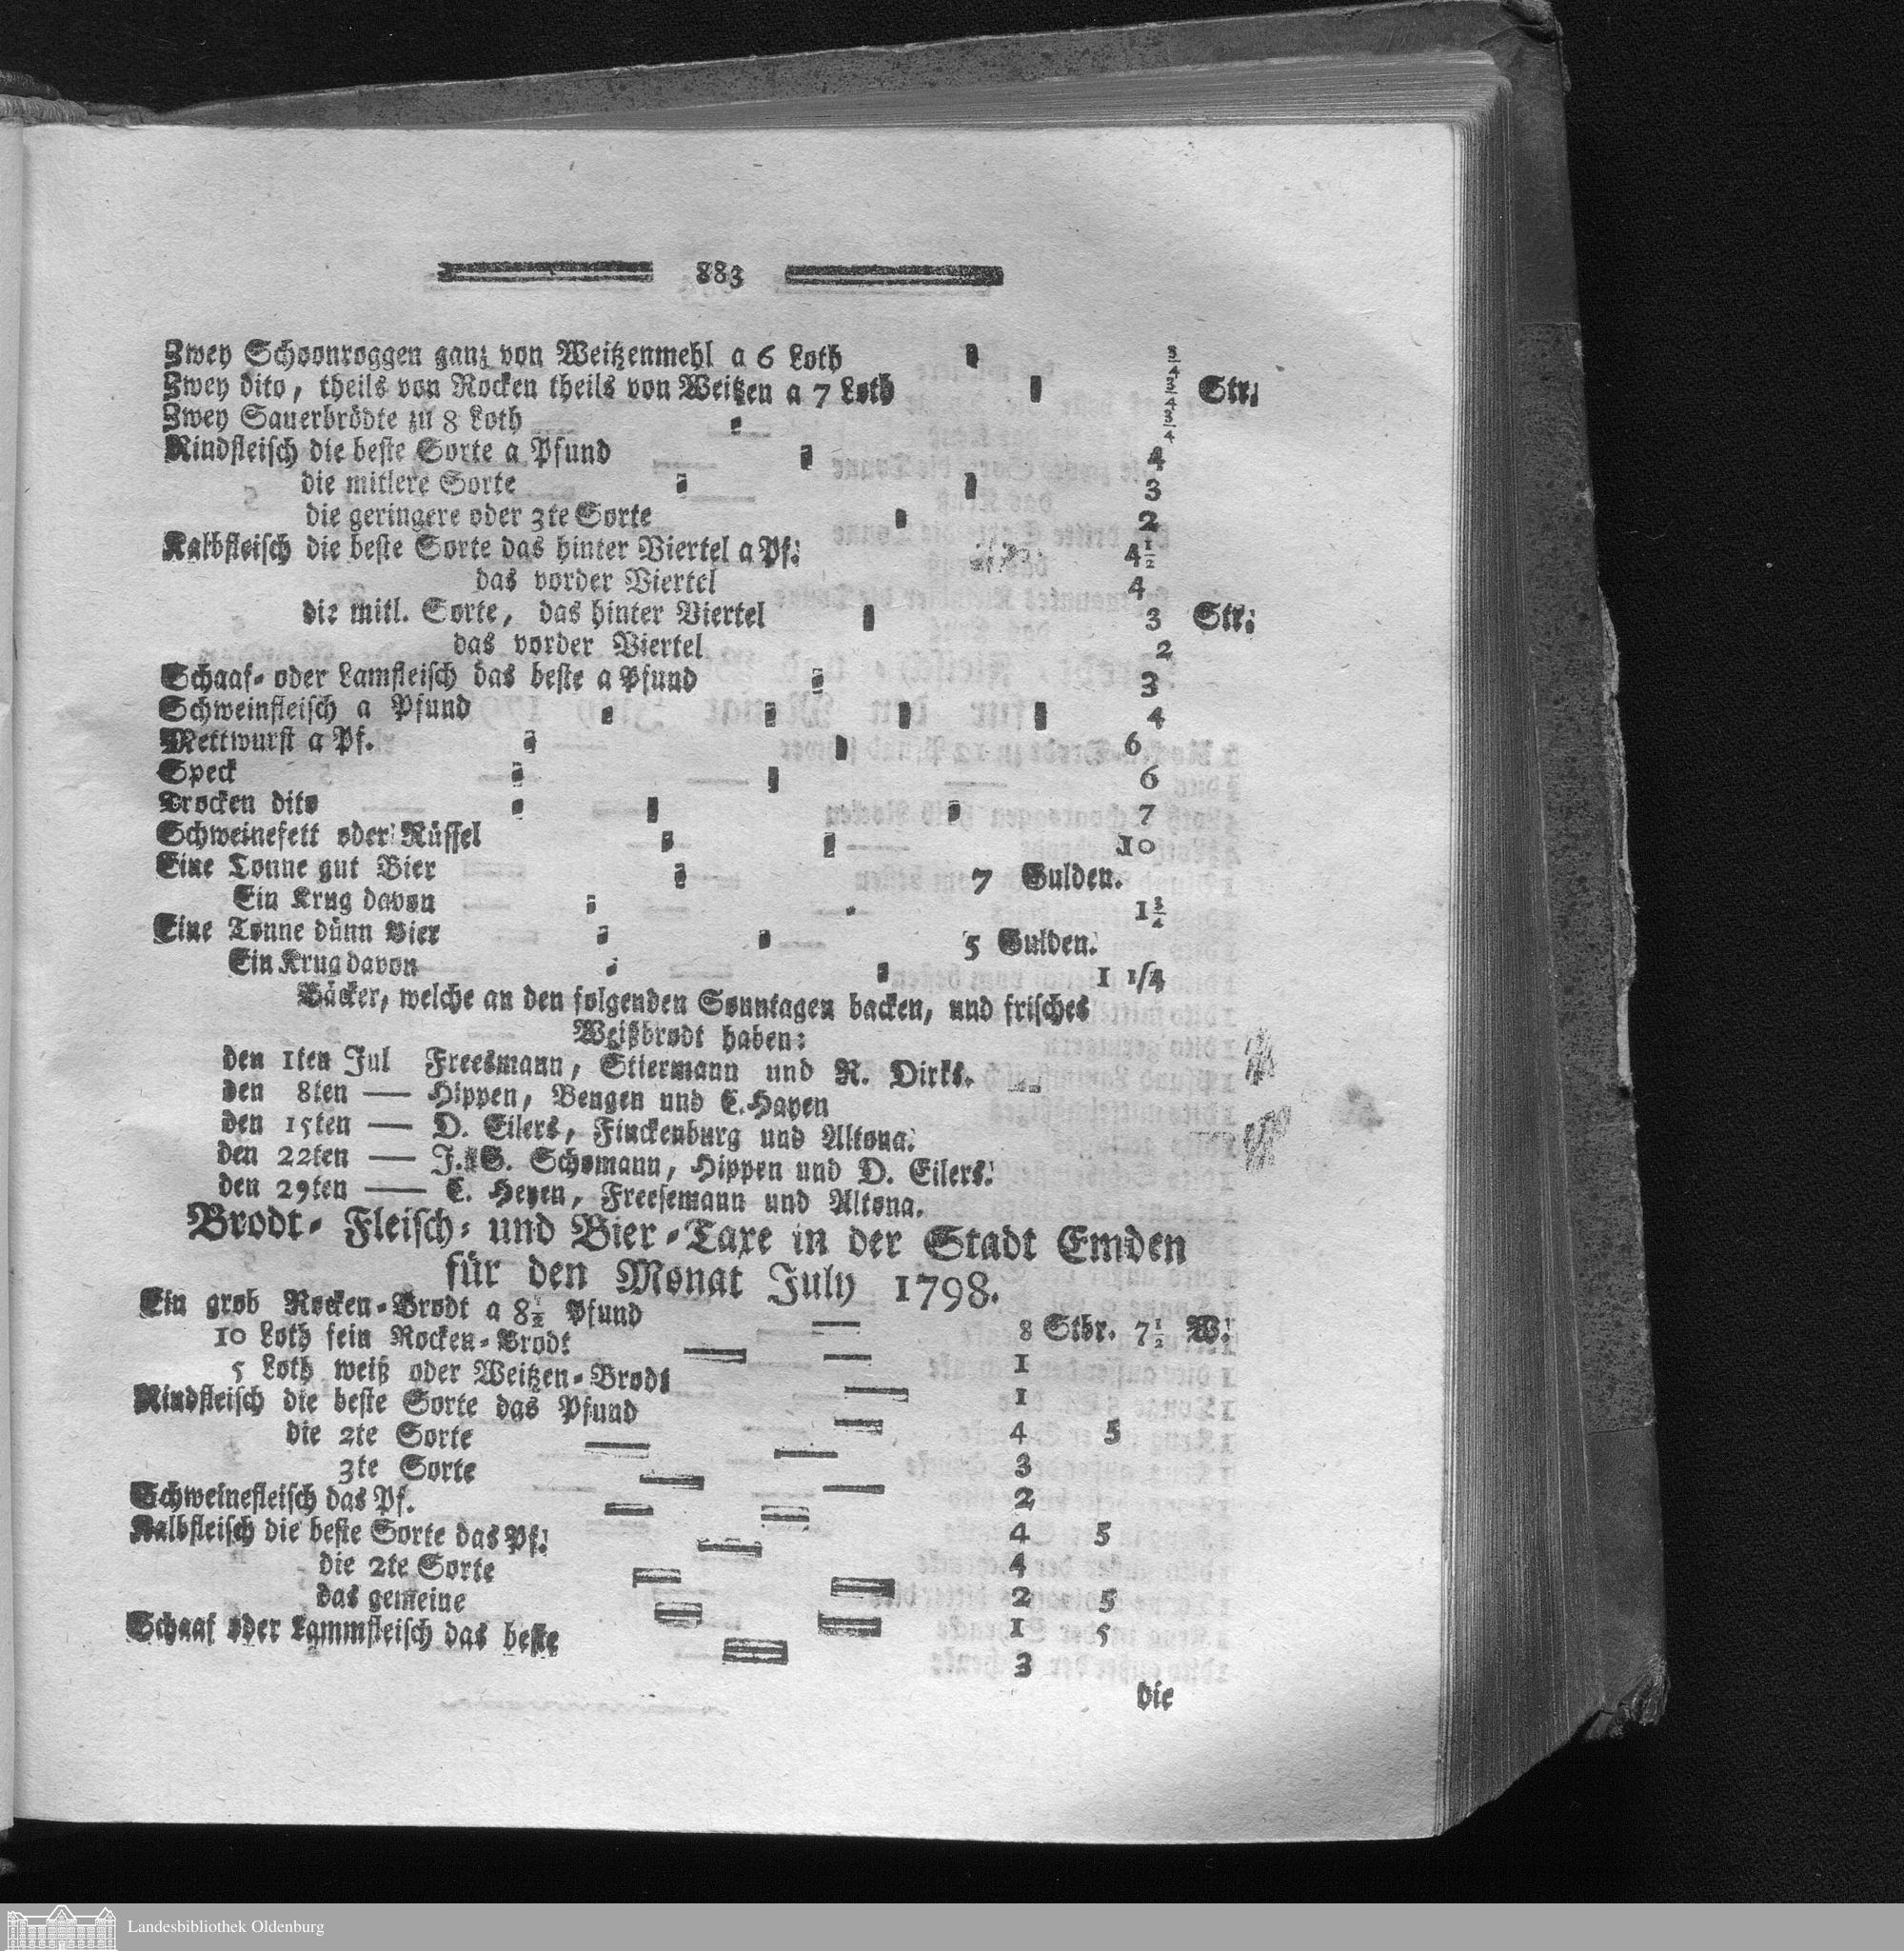 883
Zwey Schoonroggen ganz von Weitzenmehl a 6 Loth 3/4
Zwey dito, theils von Rocken theils von Weitzen a 7 Loth 3/4 Str.
Zwey Sauerbrödte zu 8 Loth 3/4
Rindfleisch die beste Sorte a Pfund 4
die mitlere Sorte 3
die geringere oder 3te Sorte 2
Kalbfleisch die beste Sorte das hinter Viertel a Pf. 4 1/2
das vorder Viertel 4
die mitl. Sorte, das hinter Viertel 3 Str.
das vorder Viertel 2
Schaaf- oder Lamfleisch das beste a Pfund 3
Schweinfleisch a Pfund 4
Mettwurst a Pf. 6
Speck 6
Trocken dito 7
Schweinefett oder Rüssel 10
Eine Tonne gut Bier 7 Gulden.
Ein Krug davon 1 3/4
Eine Tonne dünn Bier 5 Gulden.
Ein Krug davon 1 1/4
Bäcker, welche an den folgenden Sonntagen backen, und frisches
Weißbrodt haben:
den 1ten Jul Freesmann, Stiermann und R. Dirks.
den 8ten — Hippen, Bengen und C. Hayen
den 15ten — D. Eilers, Finckenburg und Altona.
den 22ten — J. G. Schomann, Hippen und D. Eilers.
den 29ten — C. Heyen, Freesemann und Altona.
Brodt- Fleisch- und Bier-Taxe in der Stadt Emden
für den Monat July 1798.
Ein grob Rocken-Brodt a 8 1/2 Pfund — 8 Stbr. 7 1/2 W.
10 Loth fein Rocken-Brodt — — 1
5 Loth weiß oder Weitzen-Brodt — 1
Rindfleisch die beste Sorte das Pfund — 4 5
die 2te Sorte — — 3
3te Sorte — — 2
Schweinefleisch das Pf. — — 4 5
Kalbfleisch die beste Sorte das Pf. — 4
die 2te Sorte — — 2 5
das gemeine — — 1 5
Schaaf oder Lammfleisch das beste — 3
die
Landesbibliothek Oldenburg